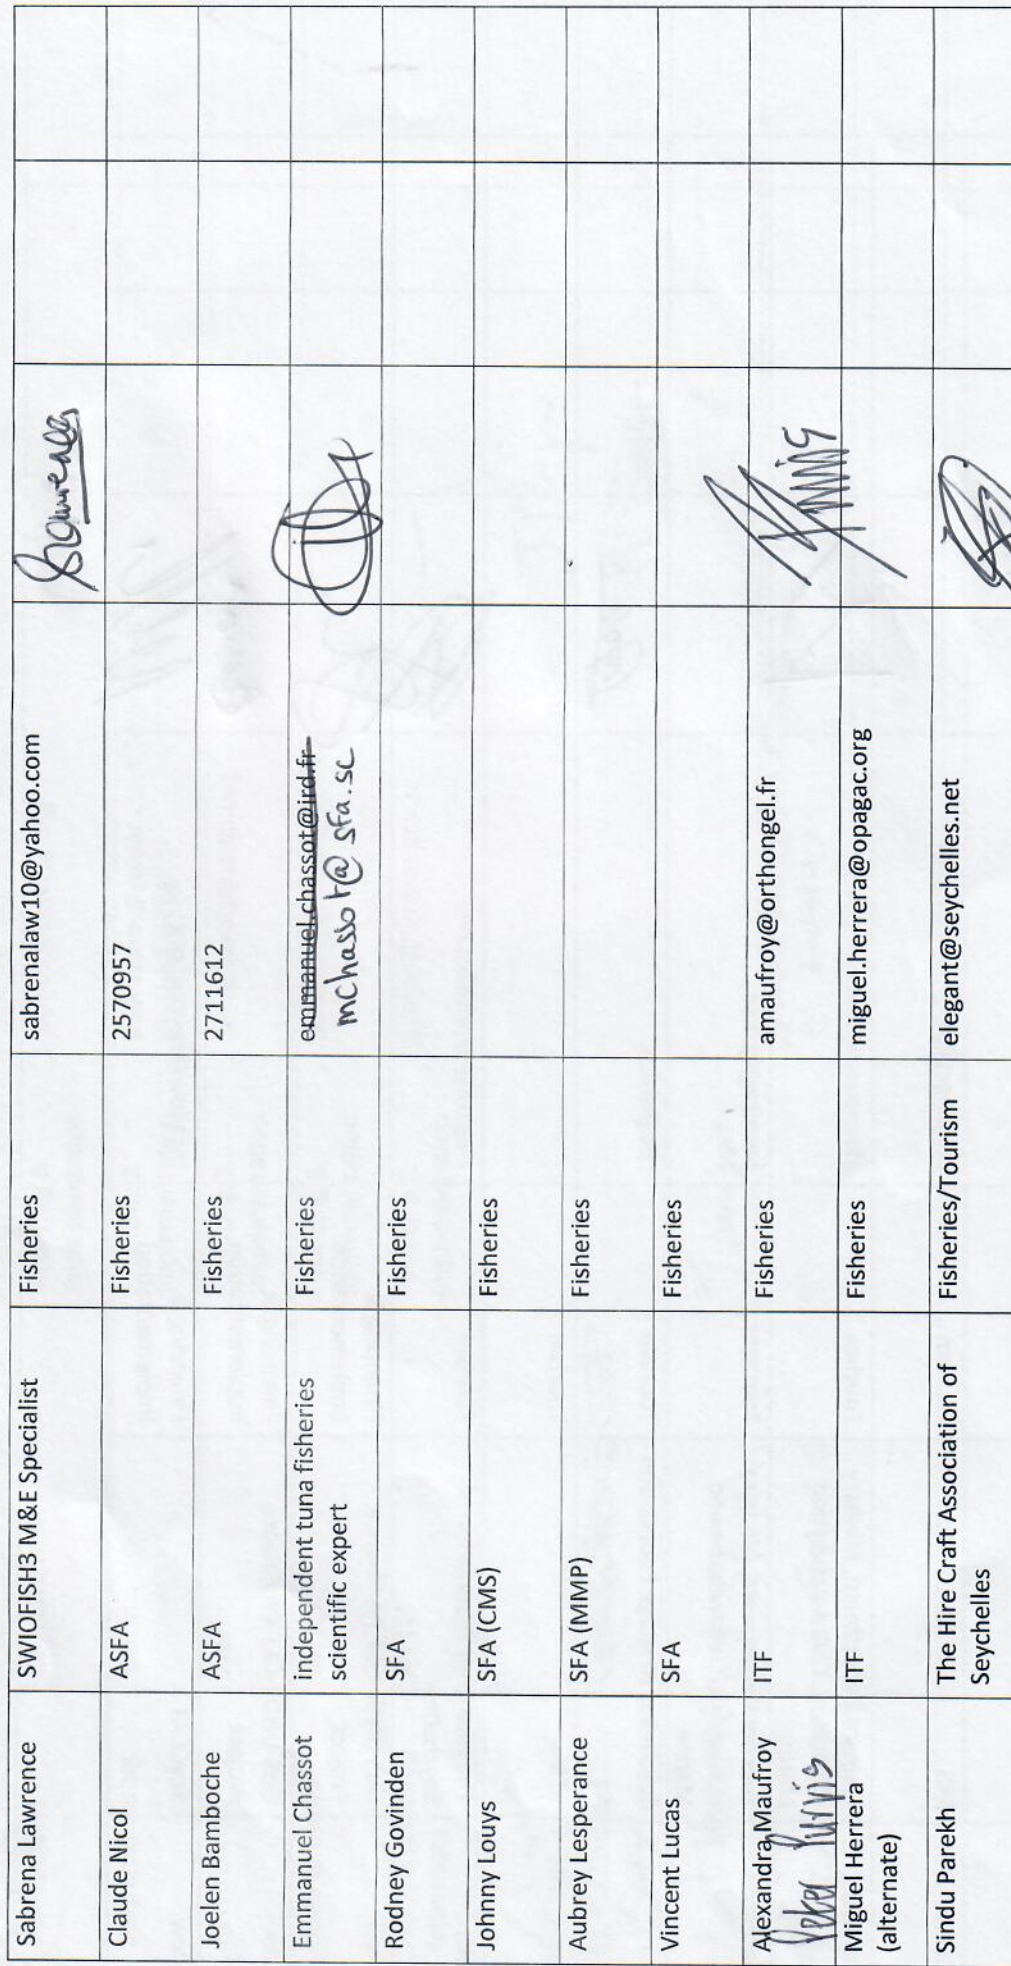 Sabrena Lawrence SWIOFISH3 M&E Specialist Fisheries sabrenalaw10@yahoo.com
Claude Nicol ASFA Fisheries 2570957
Joelen Bamboche ASFA Fisheries 2711612
Emmanuel Chassot independent tuna fisheries Fisheries emmanuel.chassot@ird.fr
scientific expert mchassot@sfa.sc
Rodney Govinden SFA Fisheries
Johnny Louys SFA (CMS) Fisheries
Aubrey Lesperance SFA (MMP) Fisheries
Vincent Lucas SFA Fisheries
Alexandra Maufroy ITF Fisheries amaufroy@orthongel.fr
Peter Purvis
Miguel Herrera ITF Fisheries miguel.herrera@opagac.org
(alternate)
Sindu Parekh The Hire Craft Association of Fisheries/Tourism elegant@seychelles.net
Seychelles